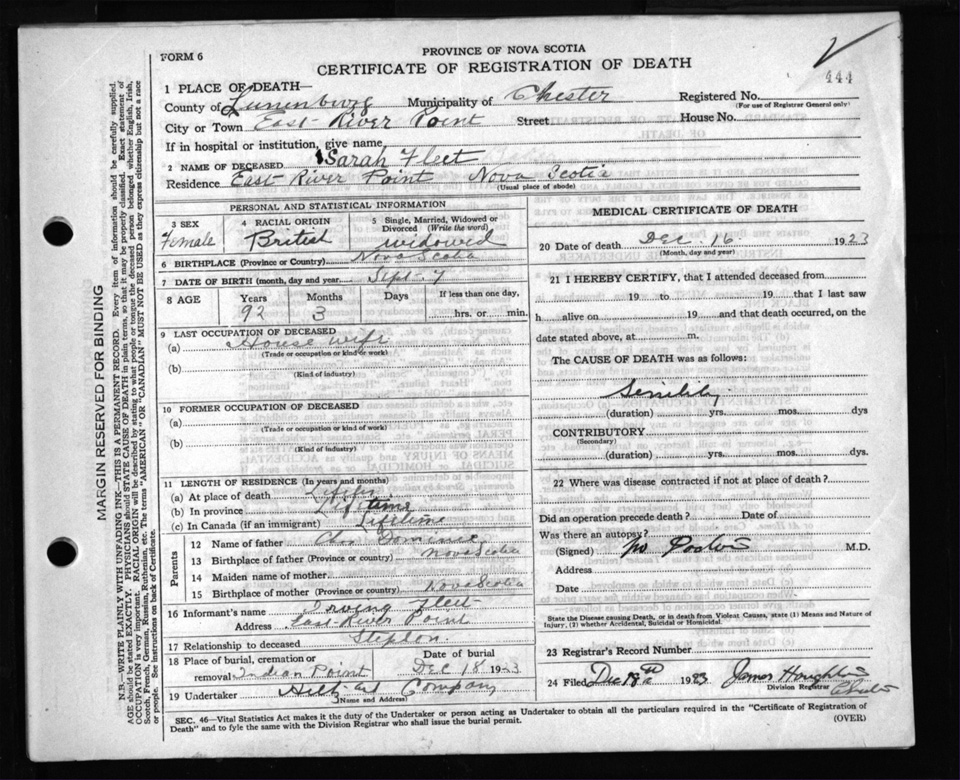 FORM 6
PROVINCE OF NOVA SCOTIA
CERTIFICATE OF REGISTRATION OF DEATH
444
1 PLACE OF DEATH—
County of Lunenburg Municipality of Chester Registered No.
(For use of Registrar General only)
City or Town East River Point Street House No.
If in hospital or institution, give name
2 NAME OF DECEASED Sarah Fleet
Residence East River Point Nova Scotia
(Usual place of abode)
PERSONAL AND STATISTICAL INFORMATION
3 SEX Female
4 RACIAL ORIGIN British
5 Single, Married, Widowed or Divorced (Write the word) widowed
6 BIRTHPLACE (Province or Country) Nova Scotia
7 DATE OF BIRTH (month, day and year) Sept 7
8 AGE Years Months Days If less than one day,
92 3 hrs. or min.
9 LAST OCCUPATION OF DECEASED
(a) House wife
(Trade or occupation or kind of work)
(b)
(Kind of industry)
10 FORMER OCCUPATION OF DECEASED
(a)
(Trade or occupation or kind of work)
(b)
(Kind of industry)
11 LENGTH OF RESIDENCE (In years and months)
(a) At place of death
(b) In province Lifetime
(c) In Canada (if an immigrant) Lifetime
Parents
12 Name of father
13 Birthplace of father (Province or country) Nova Scotia
14 Maiden name of mother
15 Birthplace of mother (Province or country) Nova Scotia
16 Informant's name Irving Fleet
Address East River Point
17 Relationship to deceased Stepson
18 Place of burial, cremation or removal Indian Point
Date of burial Dec 18 1923
19 Undertaker Company
(Name and Address)
MEDICAL CERTIFICATE OF DEATH
20 Date of death Dec 16 1923
(Month, day and year)
21 I HEREBY CERTIFY, that I attended deceased from
19 to 19 that I last saw
h alive on 19 and that death occurred, on the
date stated above, at m.
The CAUSE OF DEATH was as follows:
Senility
(duration) yrs. mos. dys
CONTRIBUTORY
(Secondary)
(duration) yrs. mos. dys.
22 Where was disease contracted if not at place of death?
Did an operation precede death? Date of
Was there an autopsy?
(Signed) M.D.
Address
Date
State the Disease causing Death, or in Death from Violent Causes, state (1) Means and Nature of Injury, (2) whether Accidental, Suicidal or Homicidal.
23 Registrar's Record Number
24 Filed Dec 18th 1923 James
Division Registrar
SEC. 46—Vital Statistics Act makes it the duty of the Undertaker or person acting as Undertaker to obtain all the particulars required in the "Certificate of Registration of
Death" and to fyle the same with the Division Registrar who shall issue the burial permit.
(OVER)
MARGIN RESERVED FOR BINDING
N.B.—WRITE PLAINLY WITH UNFADING INK—THIS IS A PERMANENT RECORD. Every item of information should be carefully supplied.
AGE should be stated EXACTLY. PHYSICIANS should STATE CAUSE OF DEATH in plain terms, so that it may be properly classified. Exact statement of
OCCUPATION is very important. RACIAL ORIGIN will be described by stating to what people or tongue the deceased person belonged whether English, Irish,
Scotch, French, German, Russian, Ruthenian, etc. The terms "AMERICAN" OR "CANADIAN" MUST NOT BE USED as they express citizenship but not a race
or people. See instructions on back of Certificate.